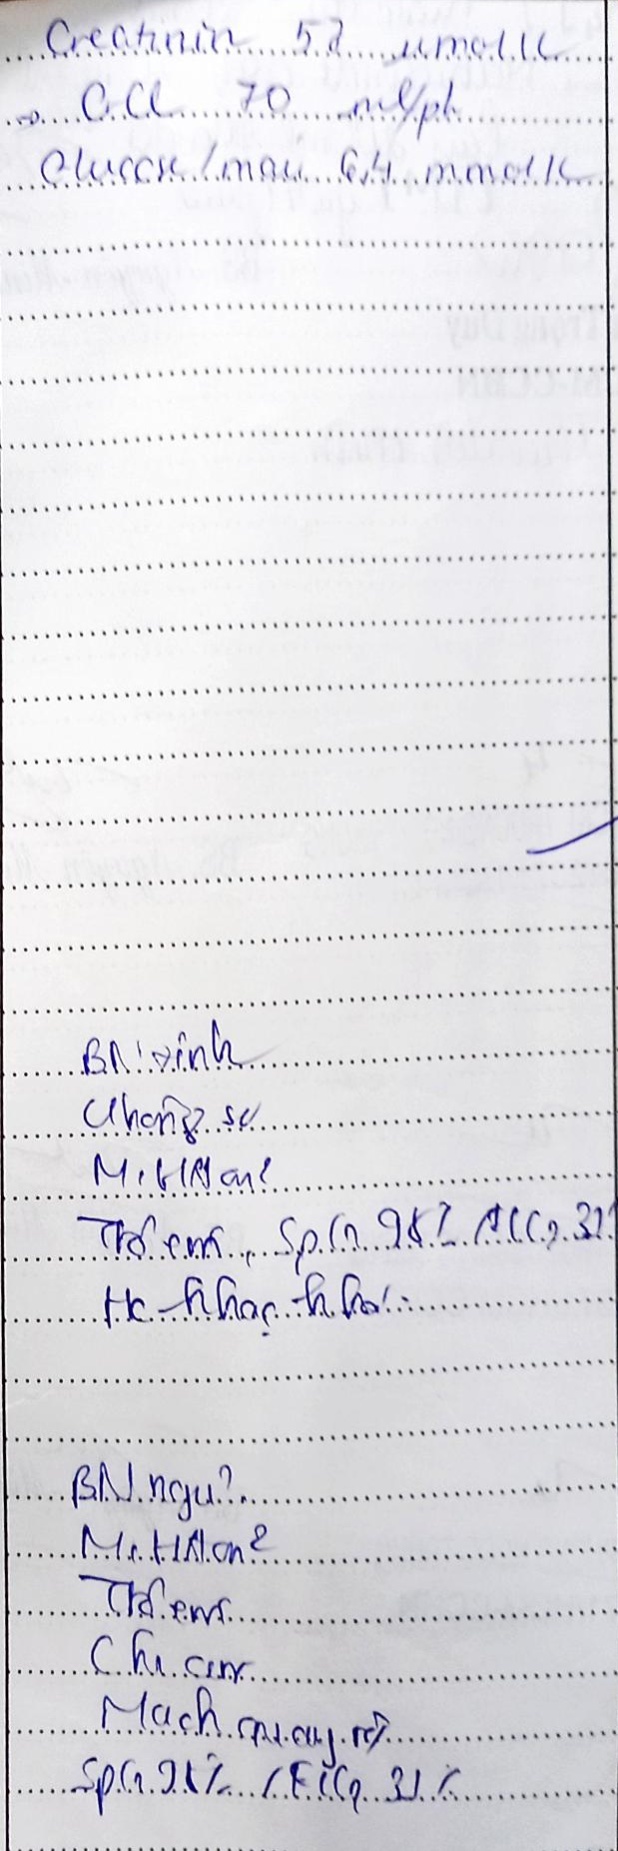 Creatinin 52 µmol/L
→ CrCl 70 ml/ph
Glucose/máu 6,4 mmol/L
BN tỉnh
Không sốt
M, HA ổn
Thở êm, SpO2 98%
Ho khạc khó
BN ngủ
M, HA ổn
Thở êm
Chi ấm
Mạch quay rõ
SpO2 98% / FiO2 31%